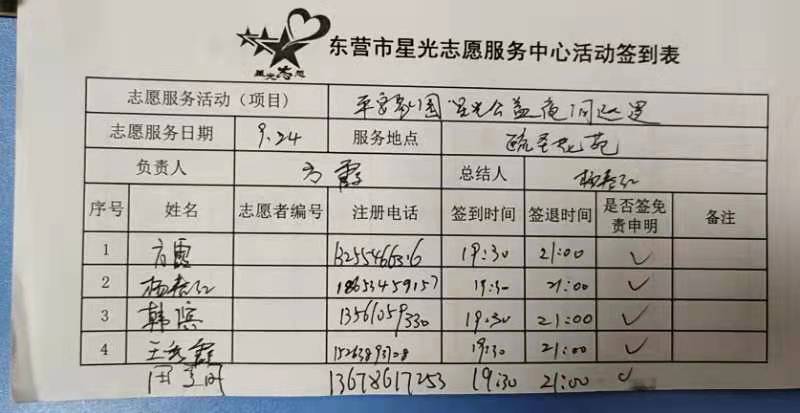 星光志愿
东营市星光志愿服务中心活动签到表
志愿服务活动（项目） 平安梦园 星光公益夜间巡逻
志愿服务日期 9.24 服务地点
负责人 方霞 总结人 杨春红
序号 姓名 志愿者编号 注册电话 签到时间 签退时间 是否签免责申明 备注
1 方霞 19:30 21:00 ✓
2 杨春红 18653459157 19:30 21:00 ✓
3 韩滨 13561059330 19:30 21:00 ✓
4 19:30 21:00 ✓
13678617253 19:30 21:00 ✓